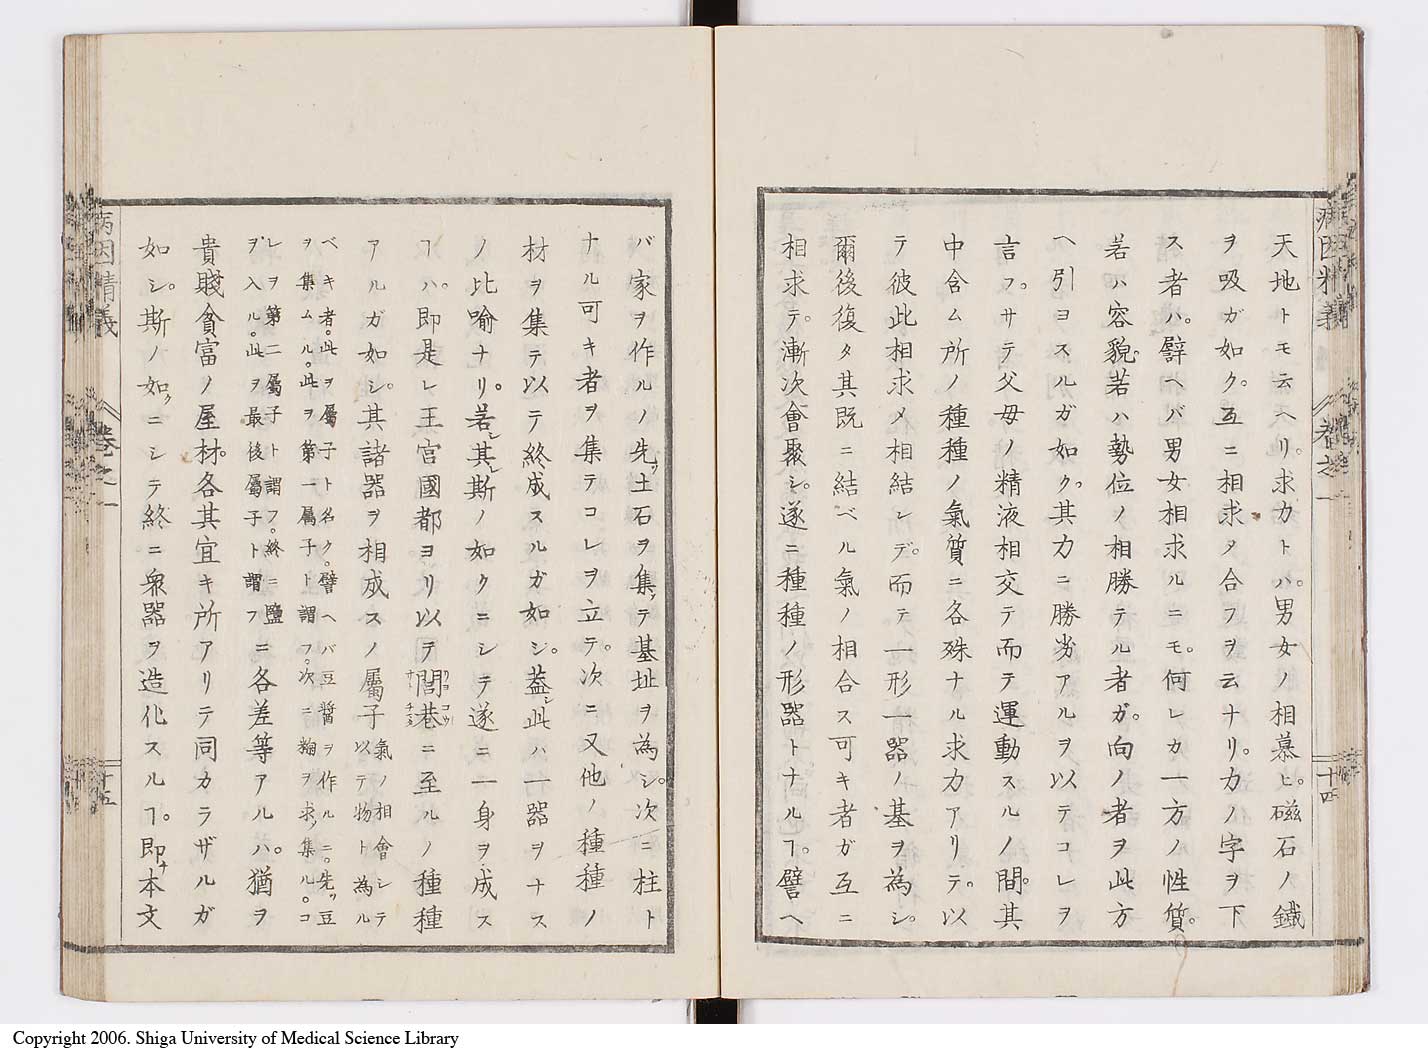 病因精義
卷之一
十四
天地トモ云ヘリ。求力トハ。男女ノ相慕ヒ。磁石ノ鐵
ヲ吸ガ如ク。互ニ相求メ合フヲ云ナリ。力ノ字ヲ下
ス者ハ。譬ヘバ男女相求ルニモ。何レカ一方ノ性質。
若ハ容貌。若ハ勢位ノ相勝テル者ガ。向ノ者ヲ此方
ヘ引ヨスルガ如ク。其力ニ勝劣アルヲ以テコレヲ
言フ。サテ父母ノ精液相交テ而テ運動スルノ間。其
中含ム所ノ種種ノ氣質ニ各殊ナル求力アリテ。以
テ彼此相求メ相結レデ。而テ一形一器ノ基ヲ為シ。
爾後復タ其既ニ結ベル氣ノ相合ス可キ者ガ互ニ
相求テ。漸次會聚シ。遂ニ種種ノ形器トナルヿ。譬ヘ
バ家ヲ作ルノ先ヅ土石ヲ集テ基址ヲ為シ。次ニ柱ト
ナル可キ者ヲ集テコレヲ立テ。次ニ又他ノ種種ノ
材ヲ集テ以テ終成スルガ如シ。蓋シ此ハ一器ヲナス
ノ比喩ナリ。若シ其レ斯ノ如クニシテ遂ニ一身ヲ成ス
ヿハ。即是レ王宮國都ヨリ以テ閭巷ニ至ルノ種種
アルガ如シ。其諸器ヲ相成スノ屬子氣ノ相會シテ以テ物ト為ル
ベキ者。此ヲ屬子ト名ク。譬ヘバ豆醬ヲ作ルニ。先ヅ豆
ヲ集ムル。此ヲ第一屬子ト謂フ。次ニ麹ヲ求メ集ル。コ
レヲ第二屬子ト謂フ。終ニ鹽
ヲ入ル。此ヲ最後屬子ト謂フニ各差等アルハ。猶ヲ
貴賤貧富ノ屋材。各其宜キ所アリテ同カラザルガ
如シ。斯ノ如クニシテ終ニ衆器ヲ造化スルヿ。即チ本文
病因精義
卷之一
十五
Copyright 2006. Shiga University of Medical Science Library